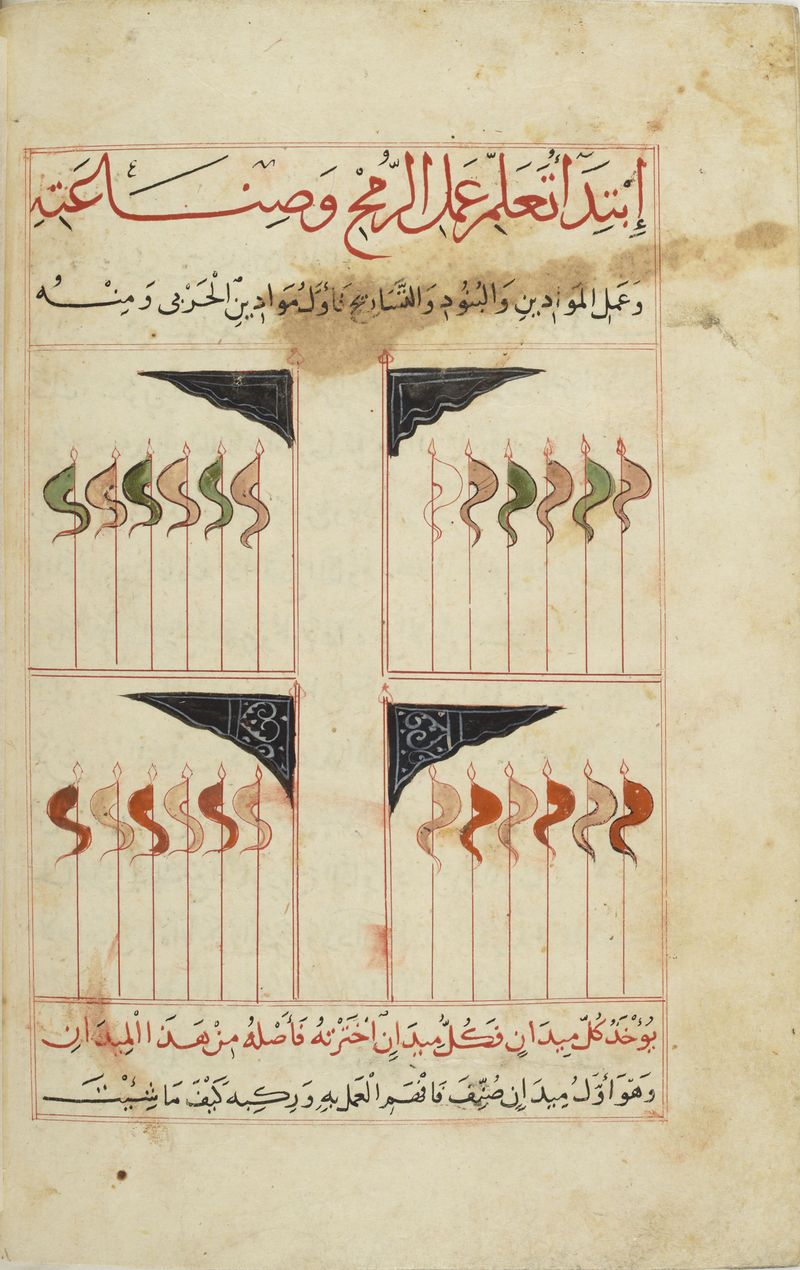 إِبْتِدَأ تَعَلُّمِ عَمَلِ الرُّمْحِ وَصِنَاعَتِهِ
وَعَمَلِ المَوَادِينِ وَالبُنُودِ وَالتَّسَارِيحِ فَأوَّلُ مَوَادِينِ الْحَرْبِى وَمِنْهُ
يُؤْخَدُ كُلّ مِيدَانٍ فَكُلُّ مِيدَانٍ اخْتَرْتهُ فَأصْلهُ مِنْ هَذَا الْمِيدَانِ
وَهُوَ أوَّلُ مِيدَانٍ صُنِّفَ فَافْهَمِ الْعَمَل بِهِ وَرَكِبه كَيْفَ مَا شِئْتَ